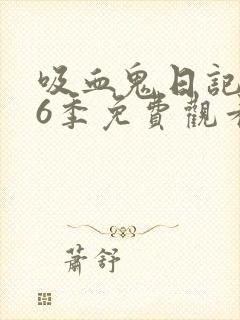 吸血鬼日記
6季免費觀看
蕭舒